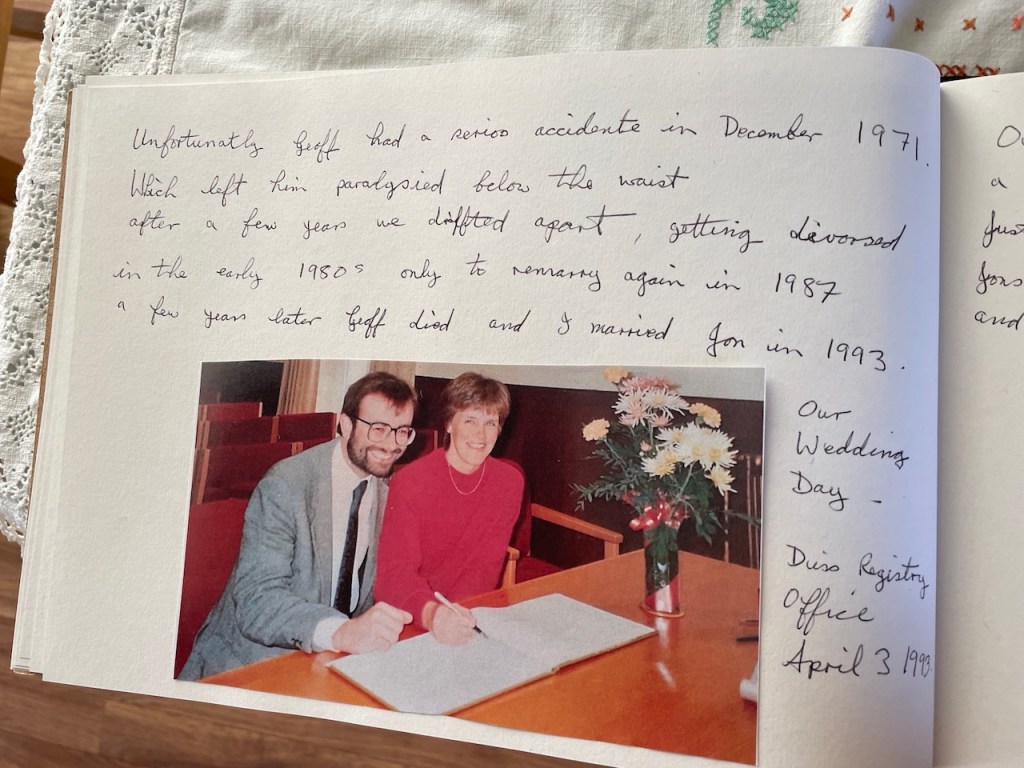 Unfortunatly Geoff had a serios accidente in December 1971.
Which left him paralysied below the waist
after a few years we drifted apart, getting divorsed
in the early 1980s only to remarry again in 1987
a few years later Geoff died and I married Jon in 1993.
Our
Wedding
Day -
Diss Registry
Office
April 3 1993
a
Jons
and